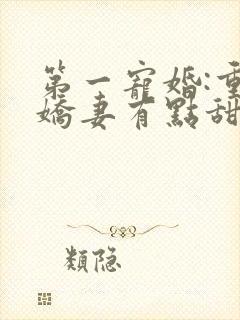 第一寵婚:重
嬌妻有點甜
類隐